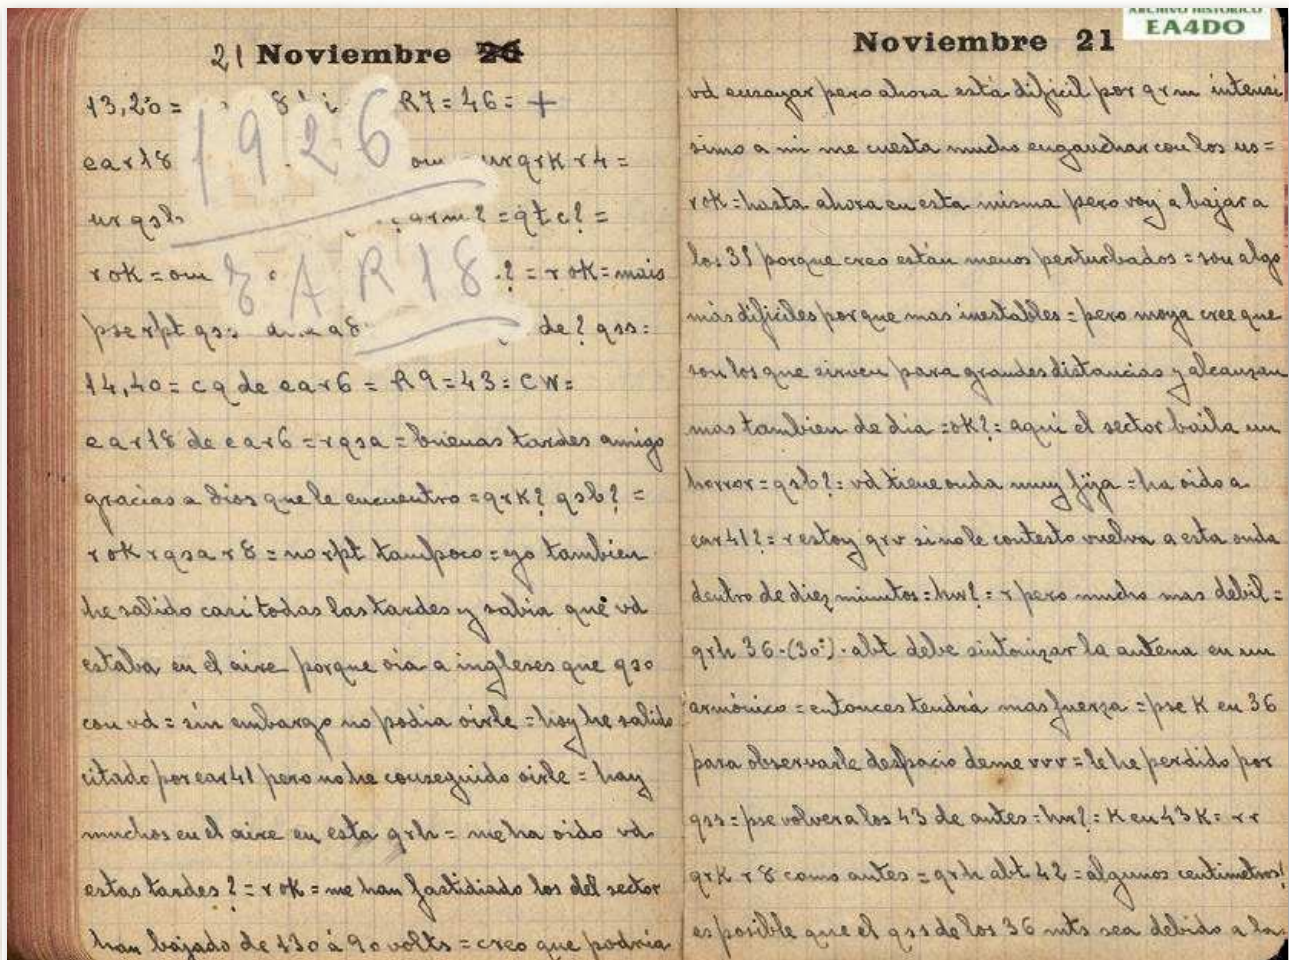 21 Noviembre 20
13,20 = R7 = 46 = +
ear18 om ur qrk r4 =
ur qsb qrm? = qtc? =
rok = om ? = rok = mais
pse rpt qss de? qss =
1926
EAR18
14,40 = cq de ear6 = R9 = 43 = CW =
ear18 de ear6 = rqsa = buenas tardes amigo
gracias a Dios que le encuentro = qrk? qsb? =
rok rqsa r8 = no rpt tampoco = yo tambien
he salido casi todas las tardes y sabia que vd
estaba en el aire porque oia a ingleses que qso
con vd = sin embargo no podia oirle = hoy he salido
citado por ear41 pero no he conseguido oirle = hay
muchos en el aire en esta qrh = me ha oido vd
estas tardes? = rok = me han fastidiado los del sector
han bajado de 130 á 90 volts = creo que podria
ARCHIVO HISTORICO
EA4DO
Noviembre 21
vd ensayar pero ahora está dificil por qrm intensi
simo a mi me cuesta mucho enganchar con los us =
rok = hasta ahora en esta misma pero voy a bajar a
los 31 porque creo están menos perturbados = son algo
más dificiles porque mas inestables = pero moya cree que
son los que sirven para grandes distancias y alcanzan
mas tambien de dia = ok? = aqui el sector baila un
horror = qsb? = vd tiene onda muy fija = ha oido a
ear41? = r estoy qrv si no le contesto vuelva a esta onda
dentro de diez minutos = hw? = r pero mucho mas debil =
qrh 36 - (30:) - abt debe sintonizar la antena en un
armónico = entonces tendrá mas fuerza = pse K en 36
para observarle despacio deme vvv = le he perdido por
qss = pse volver a los 43 de antes = hw? = K en 43 K = rr
qrk r8 como antes = qrh abt 42 = algunos centimetros!
es posible que el qss de los 36 mts sea debido a la